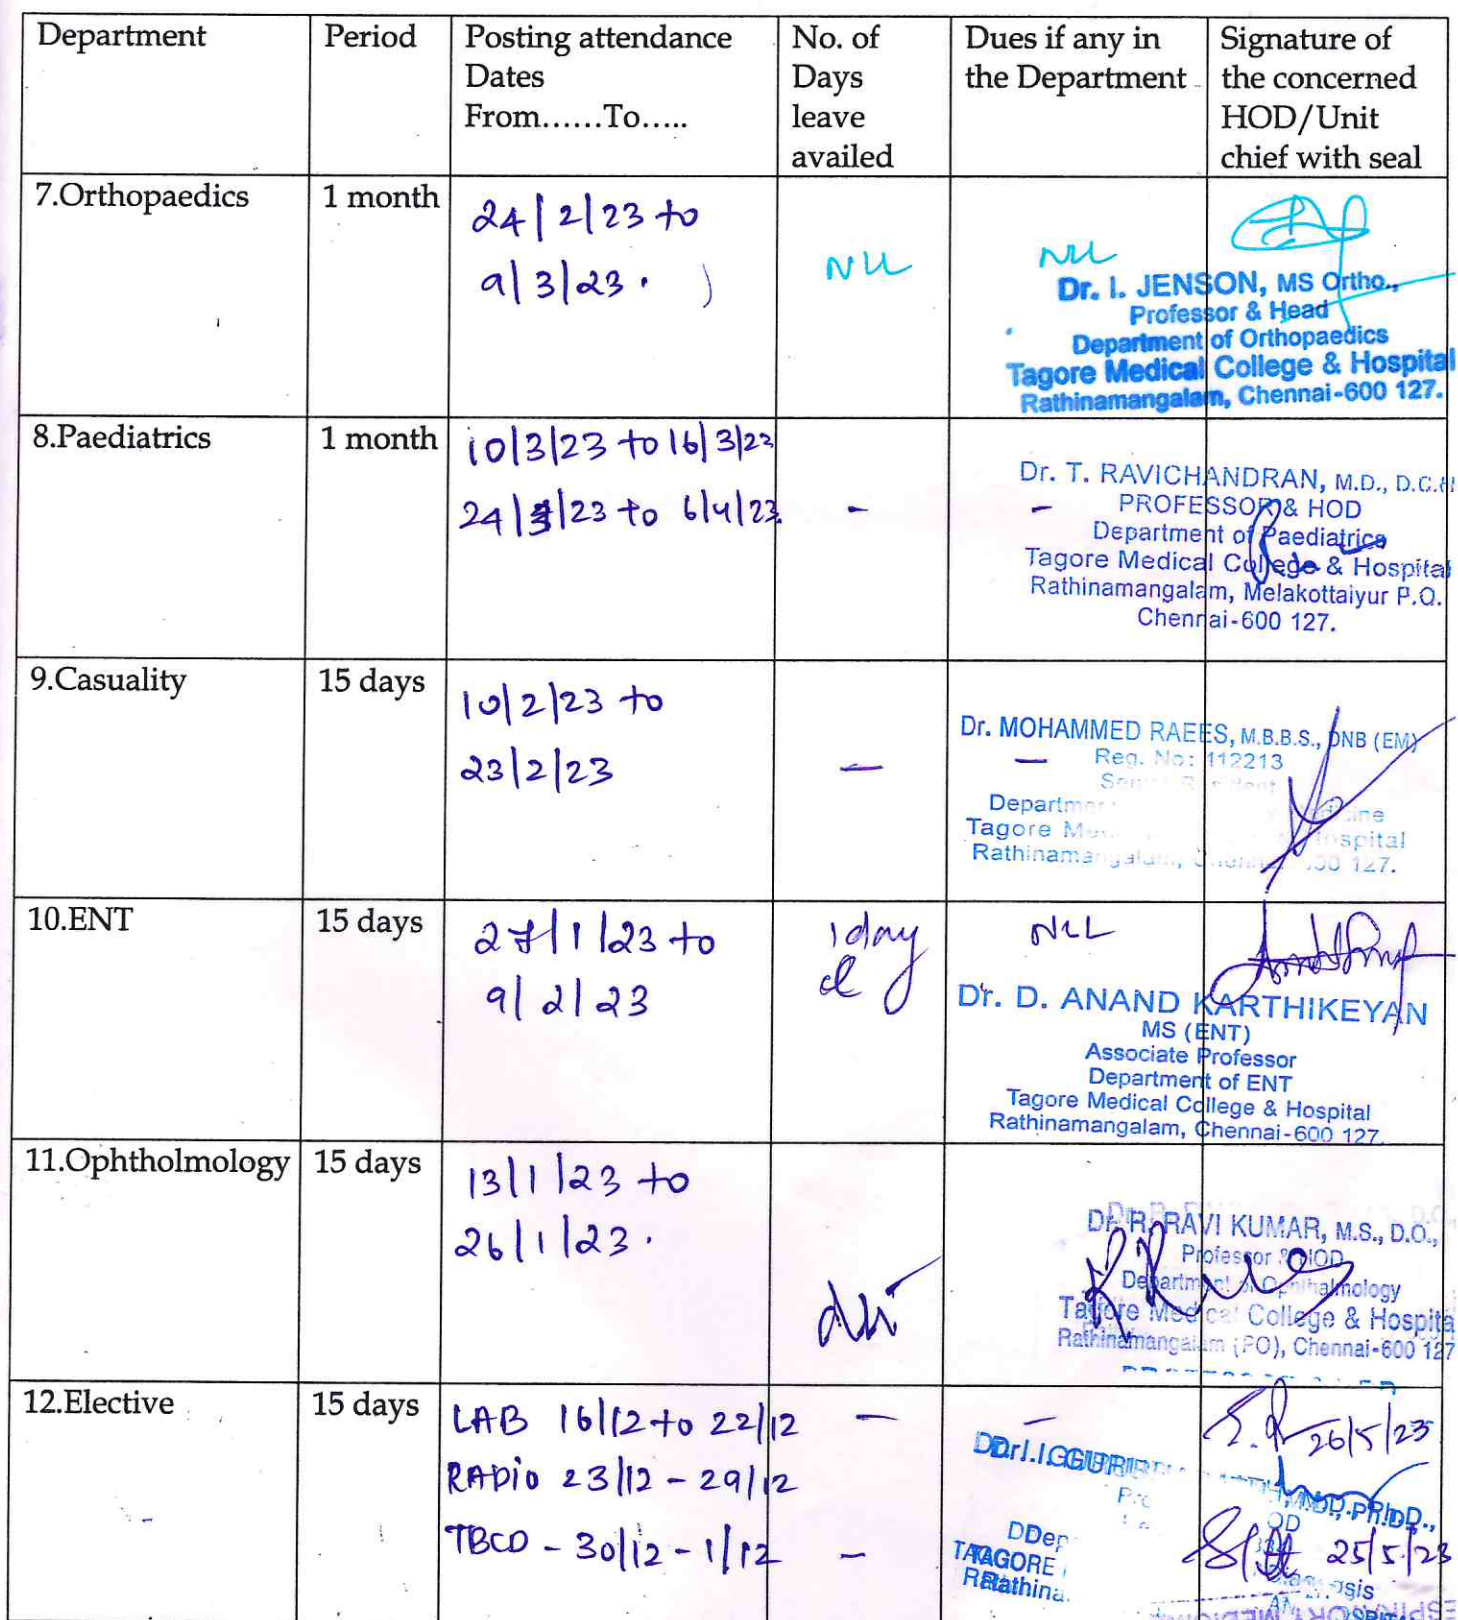 Department
Period
Posting attendance
Dates
From......To.....
No. of
Days
leave
availed
Dues if any in
the Department
Signature of
the concerned
HOD/Unit
chief with seal
7.Orthopaedics
1 month
24/2/23 to
9/3/23.
NIL
NIL
Dr. I. JENSON, MS Ortho.,
Professor & Head
Department of Orthopaedics
Tagore Medical College & Hospital
Rathinamangalam, Chennai-600 127.
8.Paediatrics
1 month
10/3/23 to 16/3/23
24/3/23 to 6/4/23
-
-
Dr. T. RAVICHANDRAN, M.D., D.C.H
PROFESSOR & HOD
Department of Paediatrics
Tagore Medical College & Hospital
Rathinamangalam, Melakottaiyur P.O.
Chennai-600 127.
9.Casuality
15 days
10/2/23 to
23/2/23
-
-
Dr. MOHAMMED RAEES, M.B.B.S., DNB (EM)
Reg. No: 112213
Tagore
Hospital
Rathinamangalam, 127.
10.ENT
15 days
27/1/23 to
9/2/23
1 day
NIL
Dr. D. ANAND KARTHIKEYAN
MS (ENT)
Associate Professor
Department of ENT
Tagore Medical College & Hospital
Rathinamangalam, Chennai-600 127.
11.Ophtholmology
15 days
13/1/23 to
26/1/23.
Dr. R. RAVI KUMAR, M.S., D.O.,
Professor & HOD
Department of Ophthalmology
Tagore Medical College & Hospita
Rathinamangalam (PO), Chennai-600 127
12.Elective
15 days
LAB 16/12 to 22/12
RADIO 23/12 - 29/12
TBCD - 30/12 - 1/12
-
-
-
26/5/23
25/5/23
TAGORE